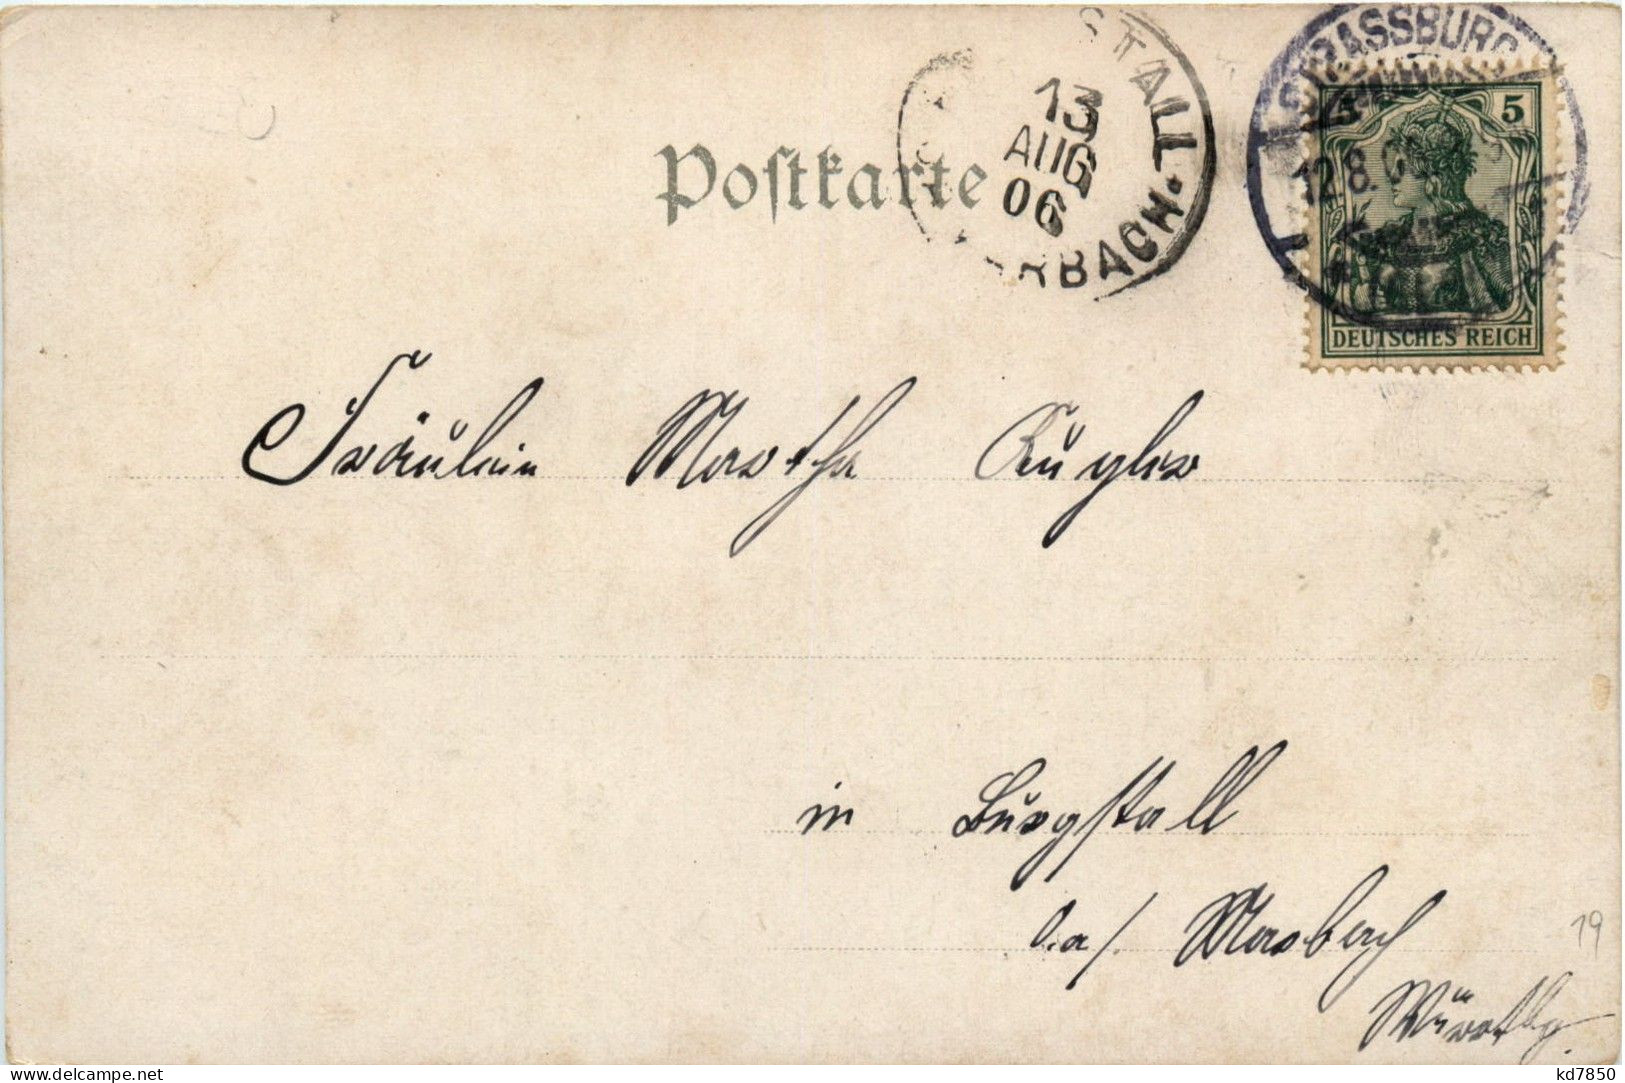 STRASSBURG
5 5
12.8.06
DEUTSCHES REICH
STALL
13
AUG
06
RBACH.
Postkarte
Fräulein Martha Kugler
in Burgstall
O.a/. Marbach
Württbg.
19
kd7850